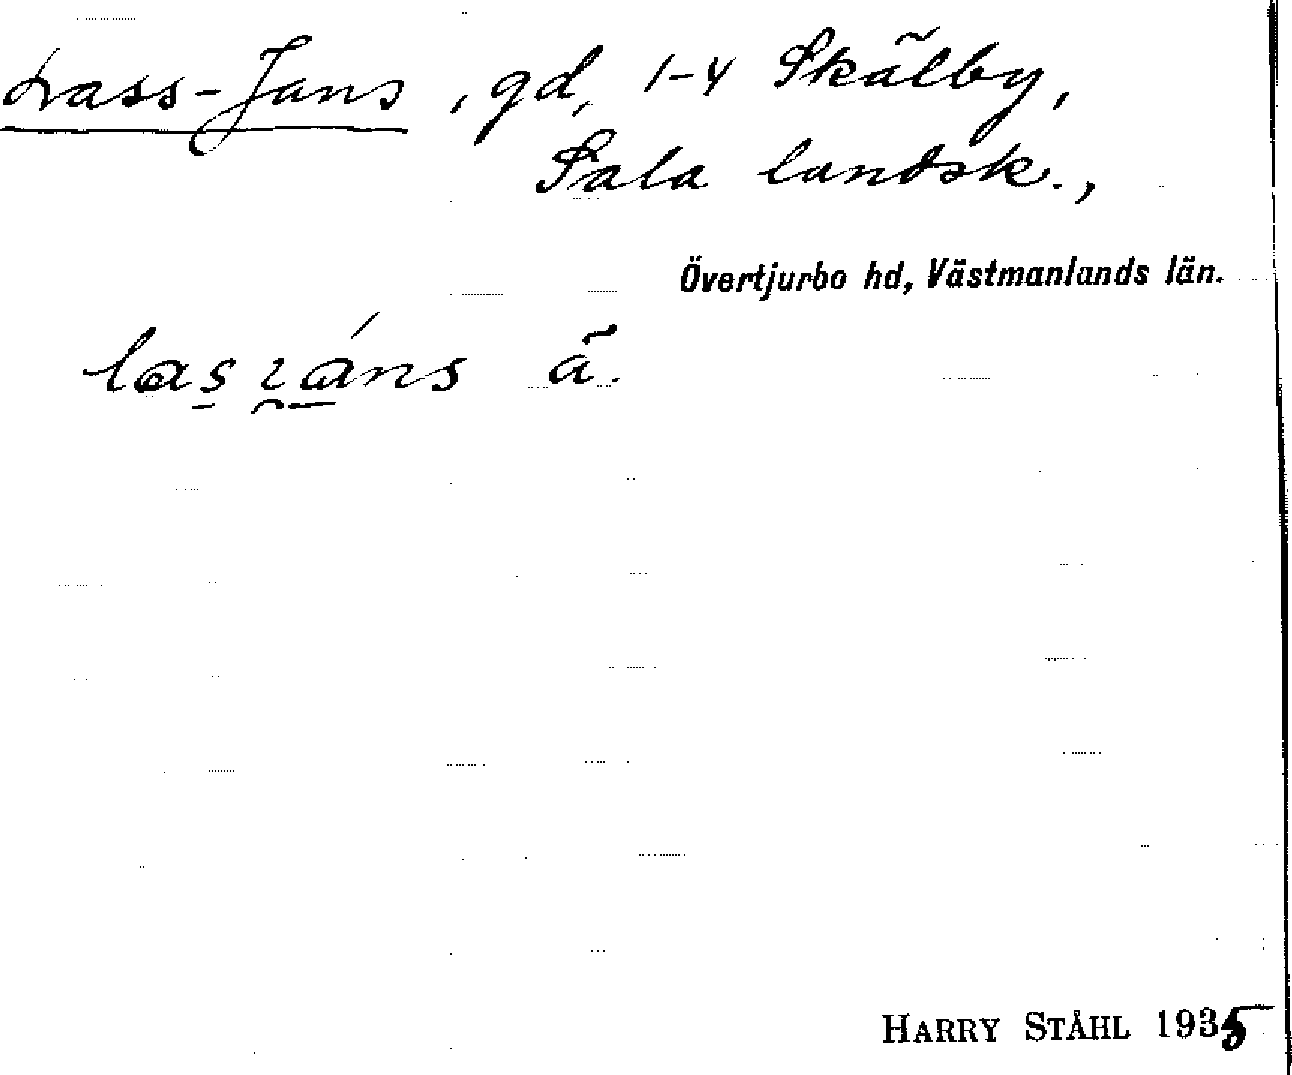 Lass-Jans, gd, 1-4 Skälby,
Sala landsk.,
Övertjurbo hd, Västmanlands län.
ä.
HARRY STÅHL 1935